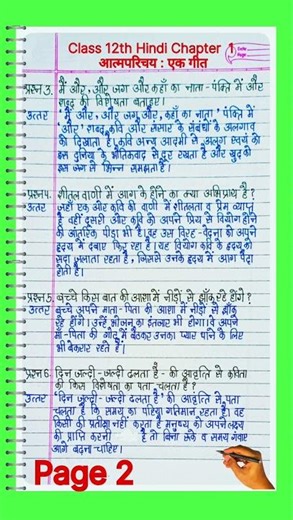 Class 12th Hindi Chapter 1
आत्मपरिचय : एक गीत
प्रश्न3. मैं और, और जग और कहाँ का नाता - पंक्ति में और
शब्द की विशेषता बताइए।
उत्तर 'मैं और, और जग और, कहाँ का नाता' पंक्ति में
'और' शब्द कवि और संसार के संबंधों के अलगाव
को दिखाता है। कवि अन्य आदमी से अलग स्वयं को
इस दुनिया के भौतिकवाद से दूर रखता है और खुद को
इस जग से भिन्न समझता है।
प्रश्न4. शीतल वाणी में आग के होने का क्या अभिप्राय है?
उत्तर जहाँ एक ओर कवि की वाणी में शीतलता व प्रेम व्याप्त
है वहीं दूसरी ओर कवि को अपने प्रिय से वियोग होने
की आंतरिक पीड़ा भी है। वह उस विरह-वेदना को अपने
हृदय में दबाए फिर रहा है। यह वियोग कवि के हृदय को
सदा जलाता रहता है, जिससे उनके हृदय में आग पैदा
होती है।
प्रश्न5. बच्चे किस बात की आशा में नीड़ों से झाँक रहे होंगे?
उत्तर बच्चे अपने माता-पिता की आशा में नीड़ों से झाँक
रहे होंगे। उन्हें भोजन का इंतजार भी होगा। वे अपने
माँ-पिता की गोद में बैठकर उनका प्यार पाने के लिए
भी बेकरार रहते हैं।
प्रश्न6. दिन जल्दी-जल्दी ढलता है - की आवृत्ति से कविता
की किस विशेषता का पता चलता है?
उत्तर 'दिन जल्दी-जल्दी ढलता है' की आवृत्ति से पता
चलता है कि समय का पहिया गतिमान रहता है। वह
किसी की प्रतीक्षा नहीं करता है मनुष्य को अपने लक्ष्य
की प्राप्ति करनी है तो बिना रुके व समय गंवाए
आगे बढ़ना चाहिए।
Page 2